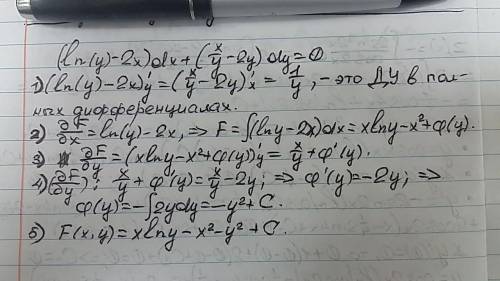 (ln(y)-2x)dx+(x/y-2y)dy=0
1) (ln(y)-2x)'y=(x/y-2y)'x=1/y, - это ДУ в пол-
ных дифференциалах.
2) ∂F/∂x=ln(y)-2x, ⇒ F=∫(lny-2x)dx=xlny-x²+φ(y).
3) ∂F/∂y=(xlny-x²+φ(y))'y=x/y+φ'(y).
4) (∂F/∂y): x/y+φ'(y)=x/y-2y; ⇒ φ'(y)=-2y; ⇒
φ(y)=-∫2ydy=-y²+C.
5) F(x,y)=xlny-x²-y²+C.